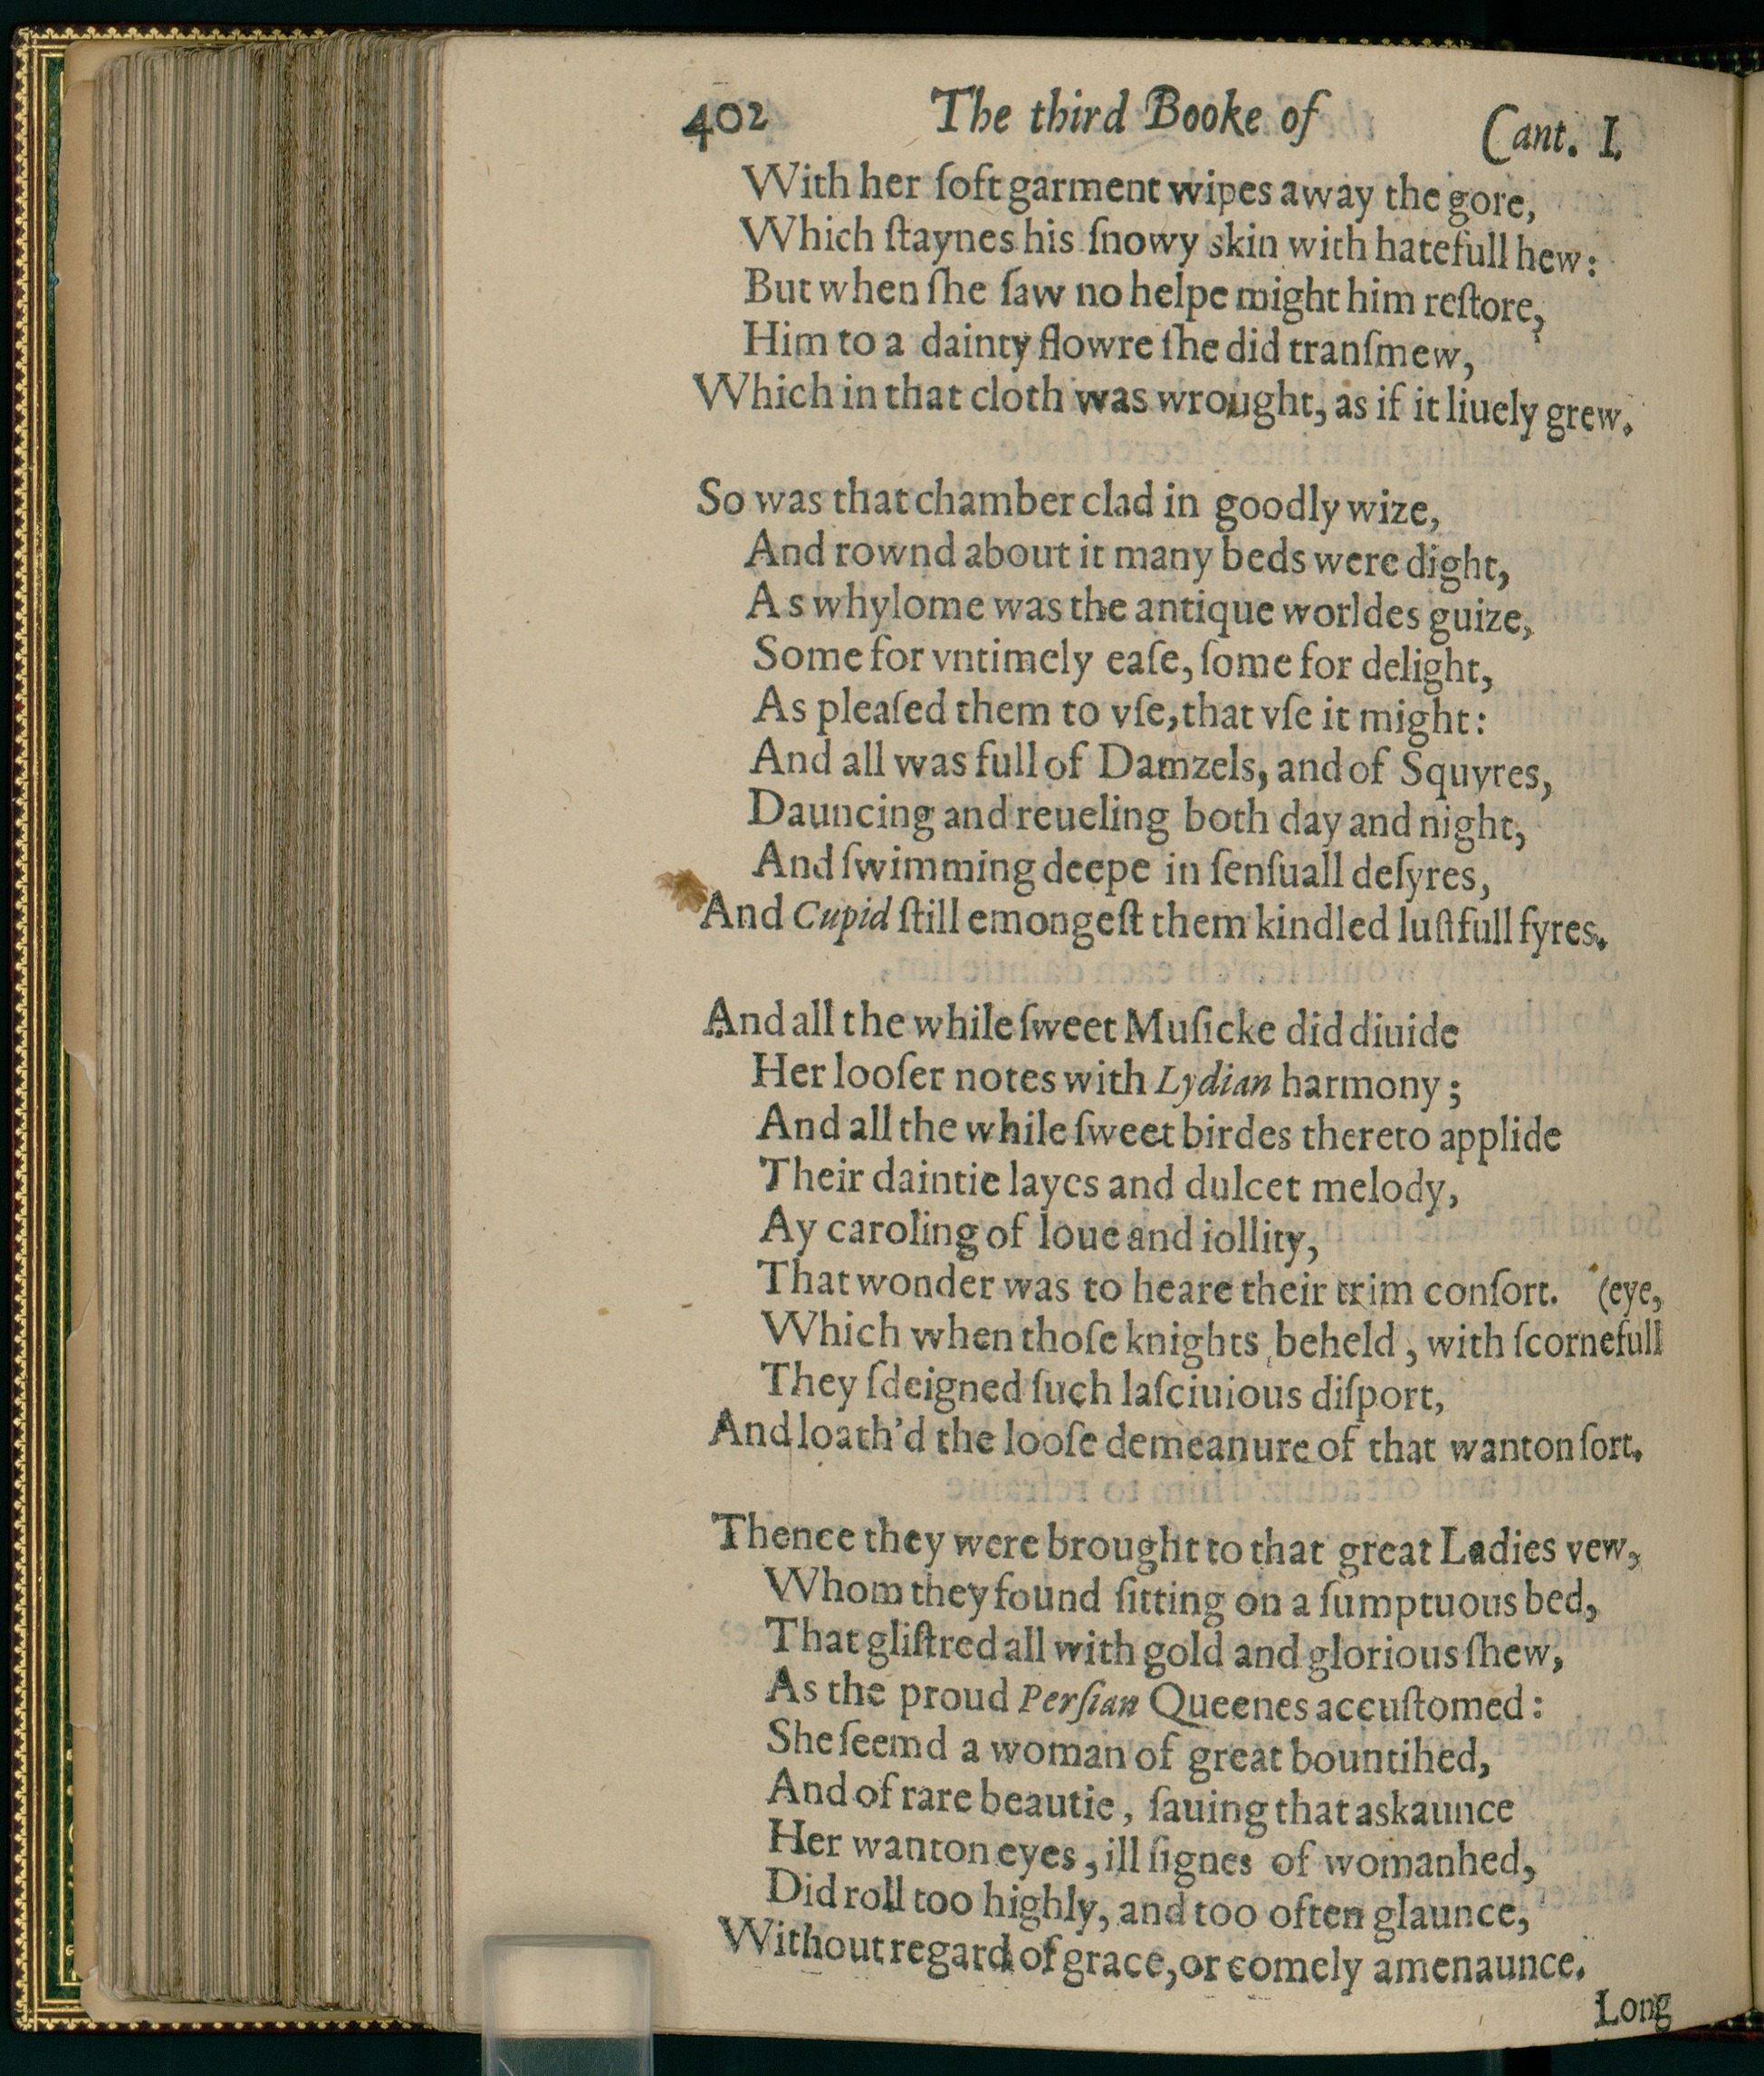 402 The third Booke of Cant. I.
With her ſoft garment wipes away the gore,
Which ſtaynes his ſnowy skin with hatefull hew:
But when ſhe ſaw no helpe might him reſtore,
Him to a dainty flowre ſhe did tranſmew,
Which in that cloth was wrought, as if it liuely grew.
So was that chamber clad in goodly wize,
And rownd about it many beds were dight,
As whylome was the antique worldes guize,
Some for vntimely eaſe, ſome for delight,
As pleaſed them to vſe, that vſe it might:
And all was full of Damzels, and of Squyres,
Dauncing and reueling both day and night,
And ſwimming deepe in ſenſuall deſyres,
And Cupid ſtill emongeſt them kindled luſtfull fyres.
And all the while ſweet Muſicke did diuide
Her looſer notes with Lydian harmony;
And all the while ſweet birdes thereto applide
Their daintie layes and dulcet melody,
Ay caroling of loue and iollity,
That wonder was to heare their trim conſort. (eye,
Which when thoſe knights beheld, with ſcornefull
They ſdeigned ſuch laſciuious diſport,
And loath'd the looſe demeanure of that wanton ſort.
Thence they were brought to that great Ladies vew,
Whom they found ſitting on a ſumptuous bed,
That gliſtred all with gold and glorious ſhew,
As the proud Perſian Queenes accuſtomed:
She ſeemd a woman of great bountihed,
And of rare beautie, ſauing that askaunce
Her wanton eyes, ill ſignes of womanhed,
Did roll too highly, and too often glaunce,
Without regard of grace, or comely amenaunce.
Long